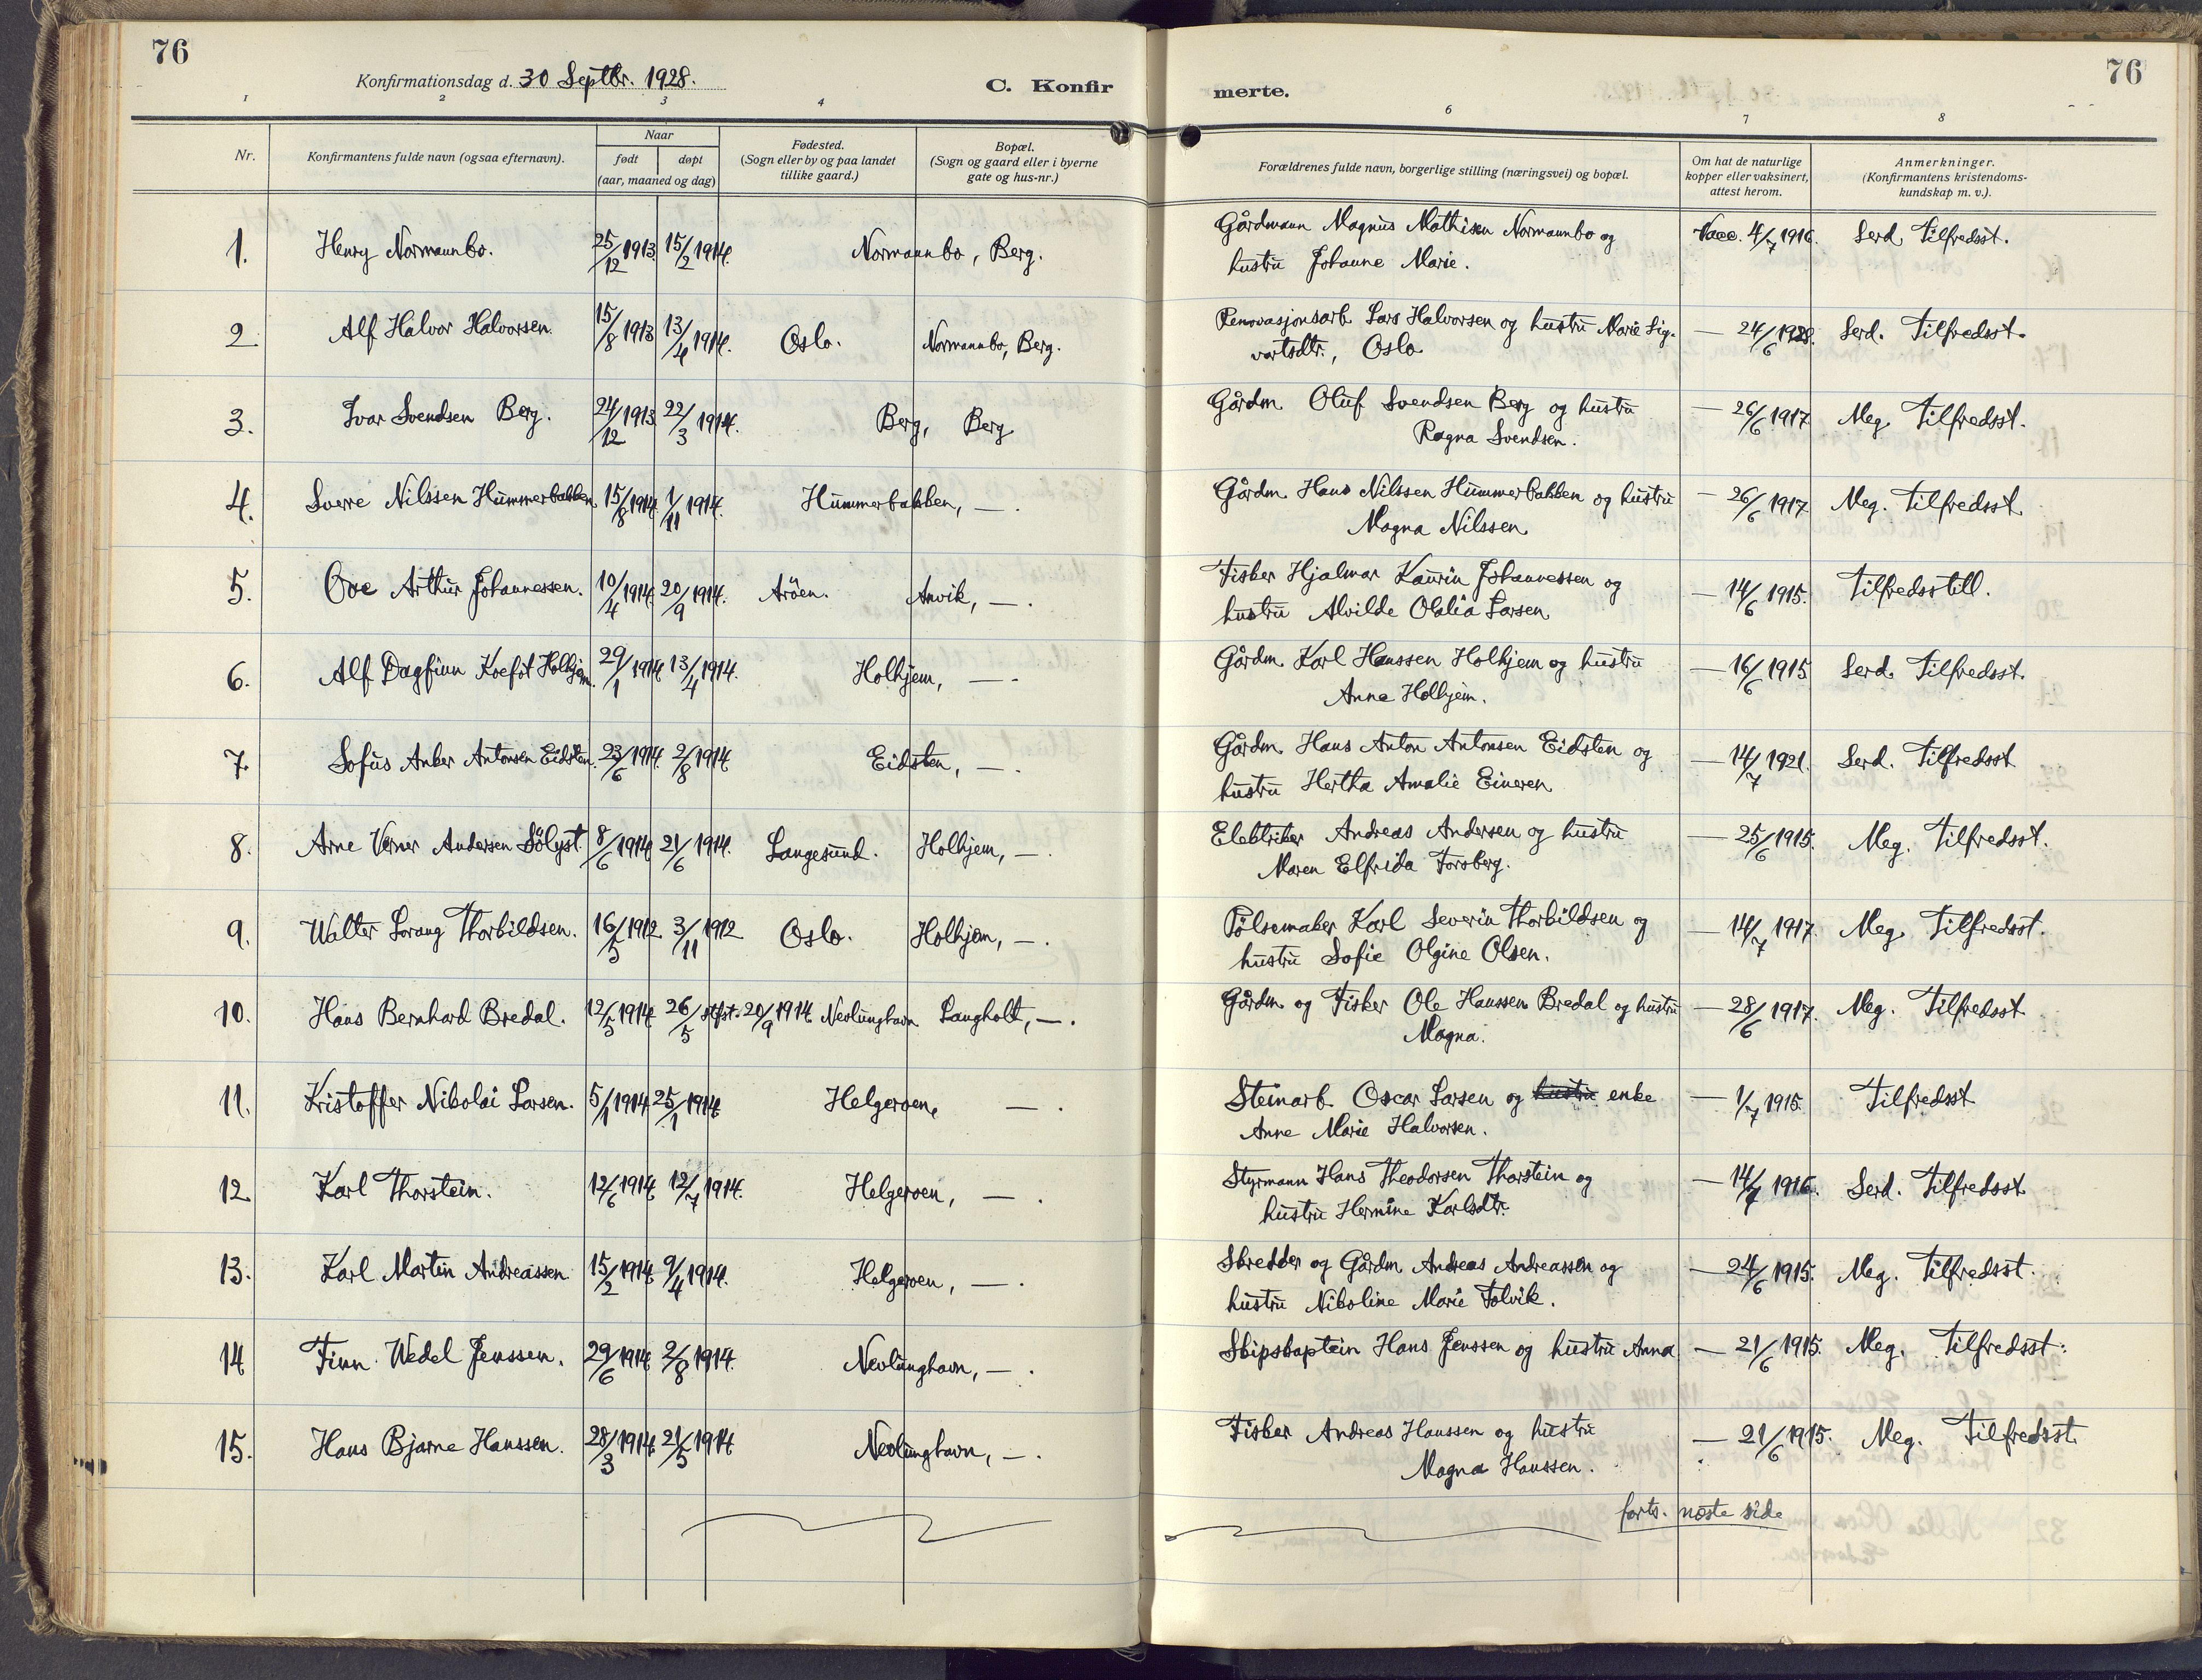 76
Konfirmationsdag d. 30 Septbr. 1928.
C. Konfir
merte.
76
1 2 3 4 6 7 8
Nr.
Konfirmantens fulde navn (ogsaa efternavn).
Naar
født
døpt
(aar, maaned og dag)
Fødested.
(Sogn eller by og paa landet
tillike gaard.)
Bopæl.
(Sogn og gaard eller i byerne
gate og hus-nr.)
Forældrenes fulde navn, borgerlige stilling (næringsvei) og bopæl.
Om hat de naturlige
kopper eller vaksinert,
attest herom.
Anmerkninger.
(Konfirmantens kristendoms-
kundskap m. v.).
1. Henry Normannbo. 25/12 1913 15/2 1914. Normannbo, Berg. Gårdmann Magnus Mathisen Normannbo og Vacc. 4/7 1916. Serd. Tilfredsst.
hustru Johanne Marie.
2 Alf Halvor Halvorsen. 15/8 1913 13/4 1914. Oslo. Normannbo, Berg. Renovasjonsarb. Lars Halvorsen og hustru Marie Sig- — 24/6 1928. Serd. Tilfredsst.
vartsdtr., Oslo
3. Ivar Svendsen Berg. 24/12 1913 22/3 1914. Berg, Berg Gårdm. Oluf Svendsen Berg og hustru — 26/6 1917 Meg. Tilfredsst.
Ragna Svendsen.
4. Sverre Nilssen Hummerbakken. 15/8 1914. 1/11 1914. Hummerbakken, —. Gårdm. Hans Nilssen Hummerbakken og hustru — 26/6 1917 Meg. Tilfredsst.
Magna Nilssen
5. Ove Arthur Johannessen. 10/4 1914. 20/9 1914. Aröen. Anvik, —. Fisker Hjalmar Kaurin Johannessen og — 14/6 1915. Tilfredsstill.
hustru Alvilde Olalia Larsen
6. Alf Dagfinn Koefot Holhjem. 29/1 1914 13/4 1914. Holhjem, —. Gårdm. Karl Hanssen Holhjem og hustru — 16/6 1915 Serd. Tilfredsst.
Anna Holhjem.
7. Sofus Anker Antonsen Eidsten. 23/6 1914. 2/8 1914 Eidsten, —. Gårdm. Hans Anton Antonsen Eidsten og — 14/7 1921. Serd. Tilfredsst
hustru Hertha Amalie Eineren
8. Arne Verner Andersen Sölyst. 8/6 1914 21/6 1914. Langesund. Holhjem, —. Elektriker Andreas Andersen og hustru — 25/6 1915. Meg. Tilfredsst.
Maren Elfrida Forsberg.
9. Walter Lorang Thorkildsen. 16/5 1912 3/11 1912 Oslo. Holhjem, —. Pölsemaker Karl Severin Thorkildsen og — 14/7 1917. Meg. Tilfredsst.
hustru Sofie Olgine Olsen.
10. Hans Bernhard Bredal. 12/5 1914. 26/5 stfst. 20/9 1914. Nevlunghavn Langholt, —. Gårdm. og Fisker Ole Hanssen Bredal og hustru — 28/6 1917. Meg. Tilfredsst
Magna.
11. Kristoffer Nikolai Larsen. 5/1 1914 25/1 1914 Helgeroen, —. Steinarb. Oscar Larsen og hustru enke — 1/7 1915. Tilfredsst
Anne Marie Halvorsen.
12. Karl Thorstein. 12/6 1914 12/7 1914. Helgeroen, —. Styrmann Hans Theodorsen Thorstein og — 14/7 1916. Serd. Tilfredsst.
hustru Hermine Karlsdtr.
13. Karl Martin Andreassen 15/2 1914 9/4 1914. Helgeroen, —. Skredder og Gårdm. Andreas Andreassen og — 24/6 1915. Meg. Tilfredsst.
hustru Nikoline Marie Tolvik.
14 Finn Wedel Jenssen. 29/6 1914. 2/8 1914. Nevlunghavn, —. Skipskaptein Hans Jenssen og hustru Anna — 21/6 1915. Meg. Tilfredsst.
15. Hans Bjarne Hanssen. 28/3 1914 21/5 1914 Nevlunghavn, —. Fisker Andreas Hanssen og hustru — 21/6 1915. Meg. Tilfredsst.
Magna Hanssen.
forts. næste side